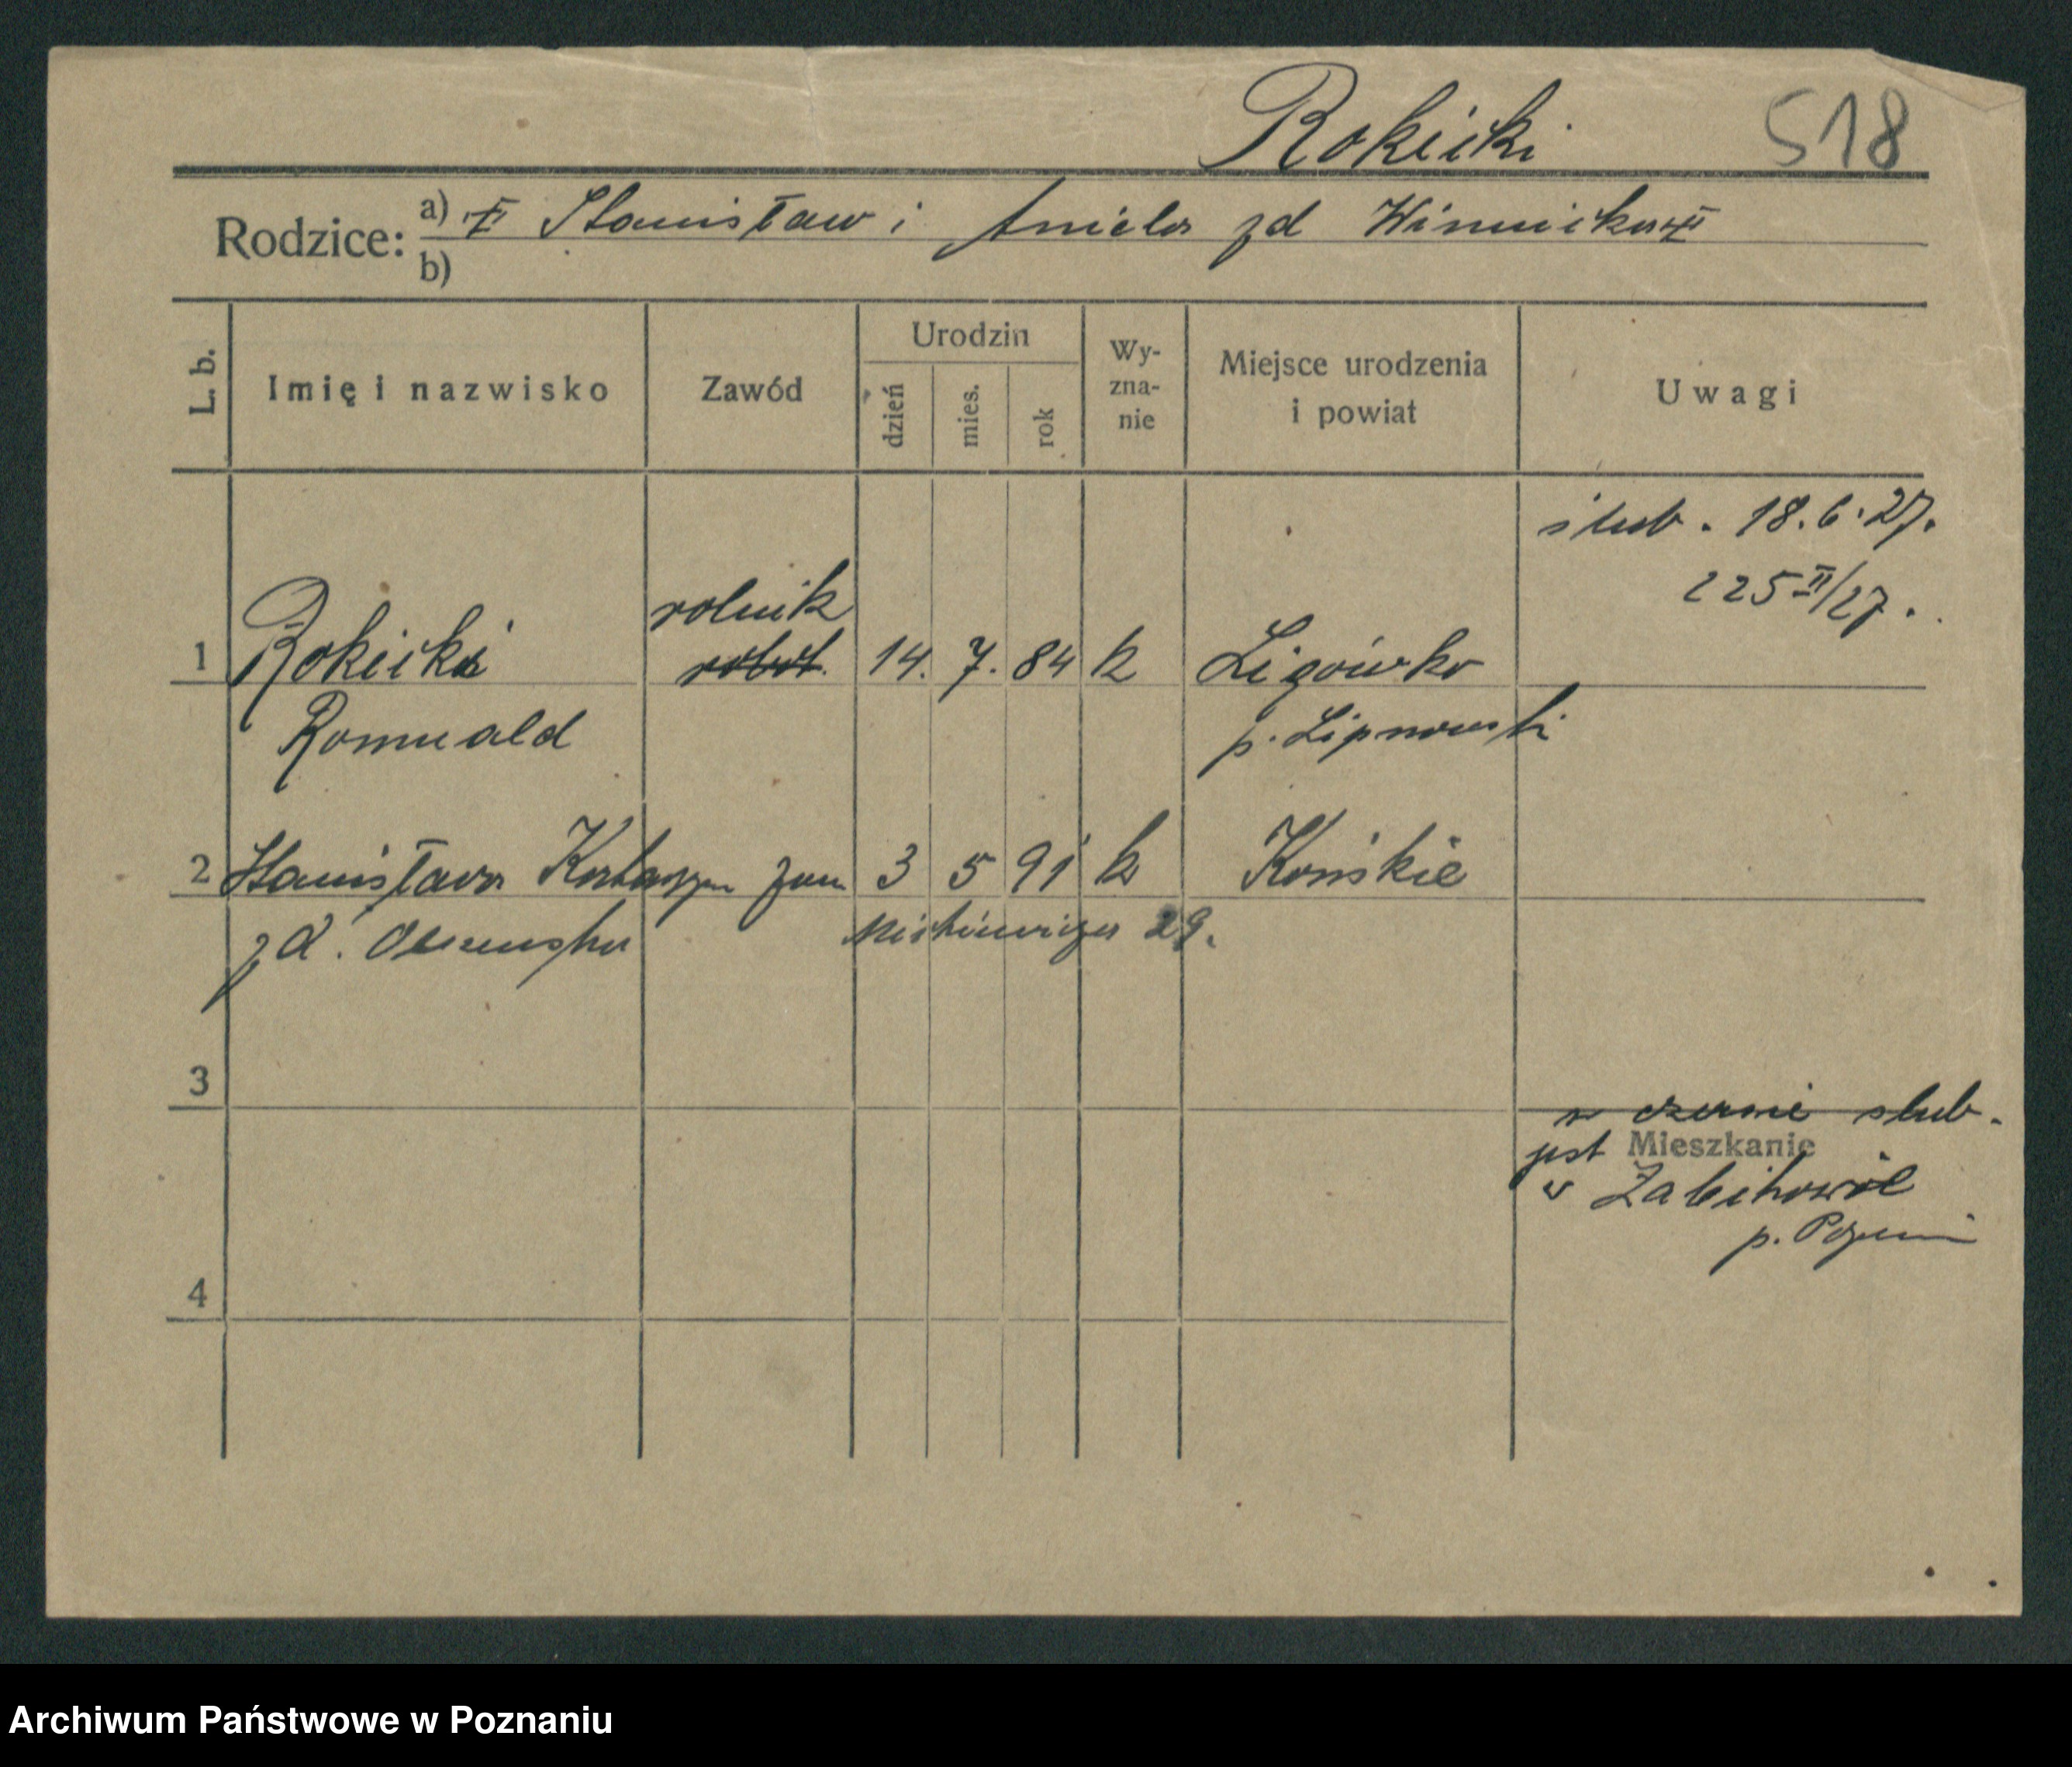 Rokicki 518
Rodzice: a) Stanisław i Aniela zd Winnicka
b)
L. b. Imię i nazwisko Zawód Urodzin dzień mies. rok Wy-zna-nie Miejsce urodzenia i powiat Uwagi
ślub. 18.6.27.
225 II/27.
rolnik
1 Rokicki robot. 14. 7. 84 k Ligówko
Romuald p. Lipnowski
2 Stanisława 3 5 91 k Końskie
zd. Mickiewicza 29.
3
w czasie ślub.
jest Mieszkanie
w Żabikowie
4
Archiwum Państwowe w Poznaniu